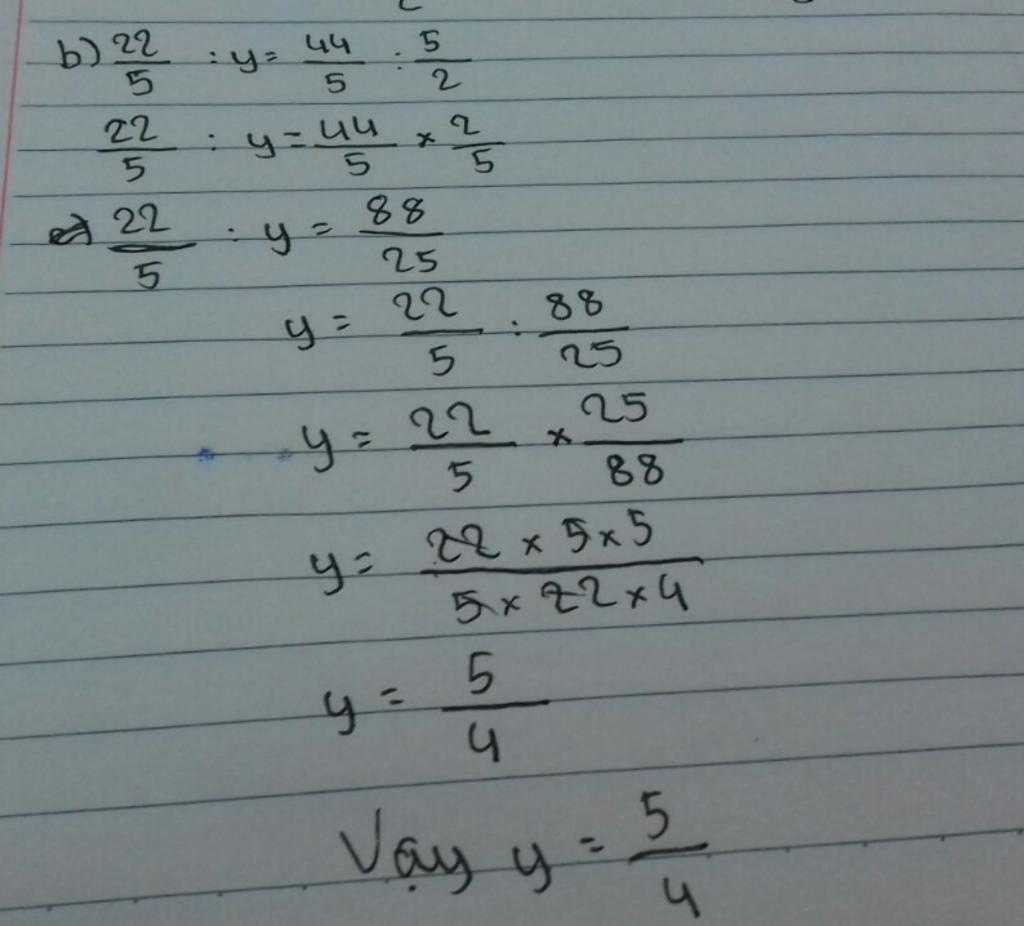 b) 22/5 : y = 44/5 : 5/2
22/5 : y = 44/5 × 2/5
22/5 : y = 88/25
y = 22/5 : 88/25
y = 22/5 × 25/88
y = 22 × 5 × 5 / 5 × 22 × 4
y = 5/4
Vạy y = 5/4